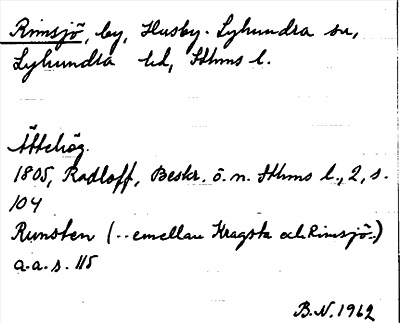 Rimsjö, by, Husby-Lyhundra sn,
Lyhundra hd, Sthms l.
Ättehög.
1805, Radloff, Beskr. ö. n. Sthms l., 2, s.
104
Runsten (.. emellan Kragsta och Rimsjö..)
a.a.s. 115
B.N. 1962